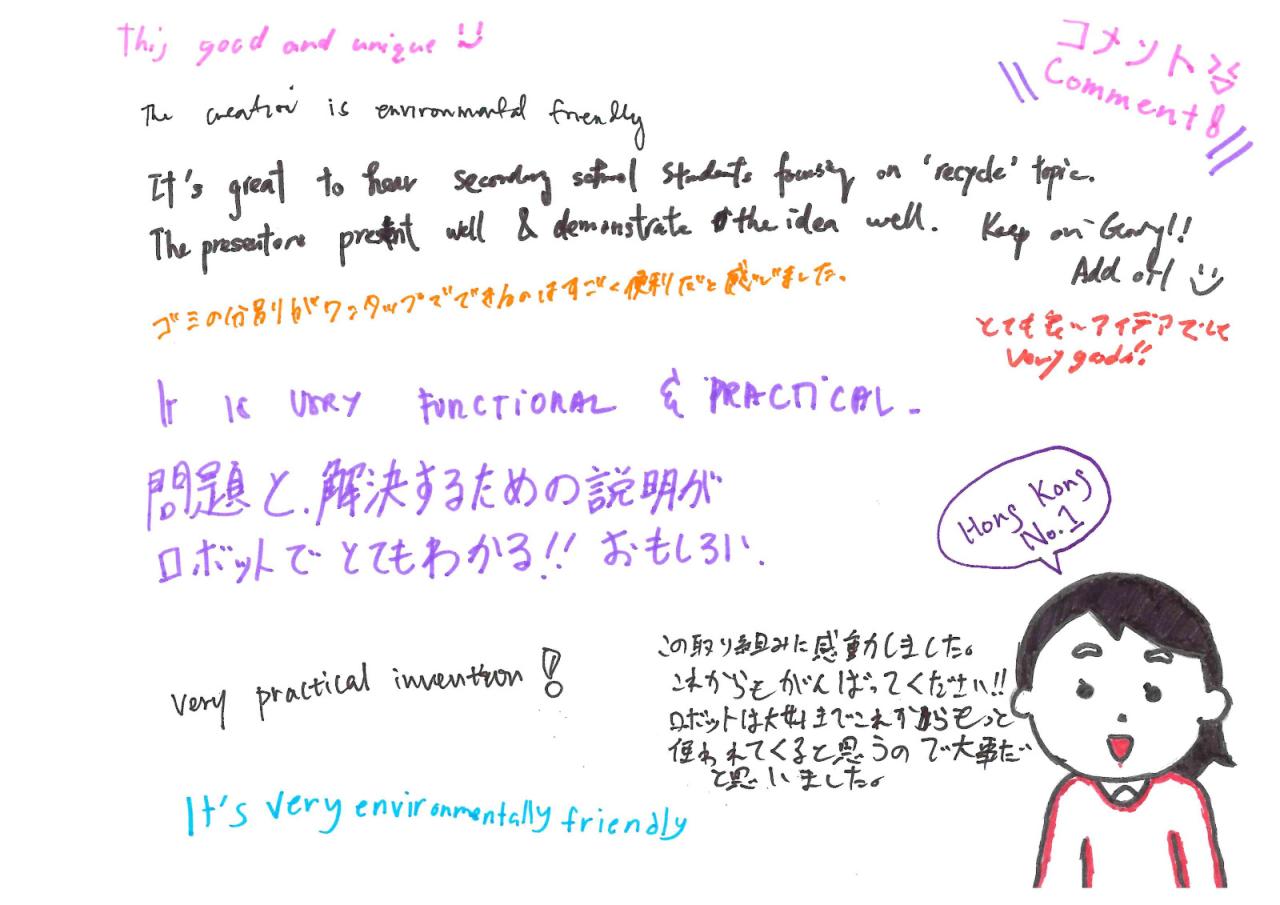 This good and unique
コメント
Comment!
The creation is environmental friendly
It's great to hear secondary school students focusing on 'recycle' topic.
The presentors present well & demonstrate the idea well.
Keep on Going!!
Add oil
ゴミの分別がワンタップでできるのはすごく便利だと感じました。
とても良いアイデアでした
Very good!!
It is VERY FUNCTIONAL & PRACTICAL.
問題と、解決するための説明が
ロボットでとてもわかる!! おもしろい.
Hong Kong
No.1
very practical invention!
この取り組みに感動しました。
これからもがんばってください!!
ロボットは大好きでこれからもっと
使われてくると思うので大事だ
と思いました。
It's very environmentally friendly